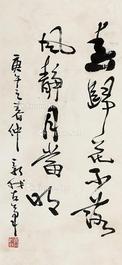 春歸花不落
風靜月當明
庚午之春仲